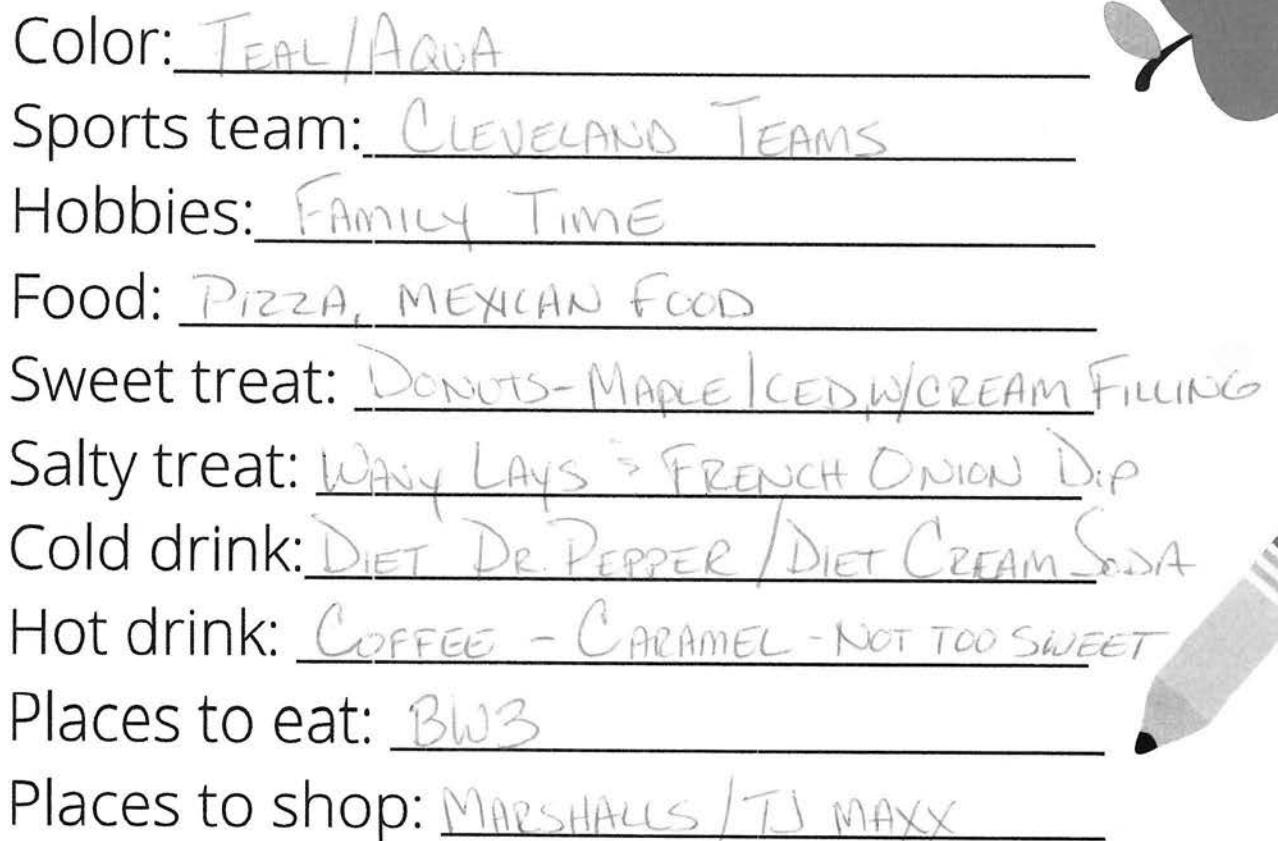 Color: TEAL/AQUA
Sports team: CLEVELAND TEAMS
Hobbies: FAMILY TIME
Food: PIZZA, MEXICAN FOOD
Sweet treat: DONUTS-MAPLE ICED, W/CREAM FILLING
Salty treat: WAVY LAYS & FRENCH ONION DIP
Cold drink: DIET DR. PEPPER/DIET CREAM SODA
Hot drink: COFFEE - CARAMEL - NOT TOO SWEET
Places to eat: BW3
Places to shop: MARSHALLS/TJ MAXX